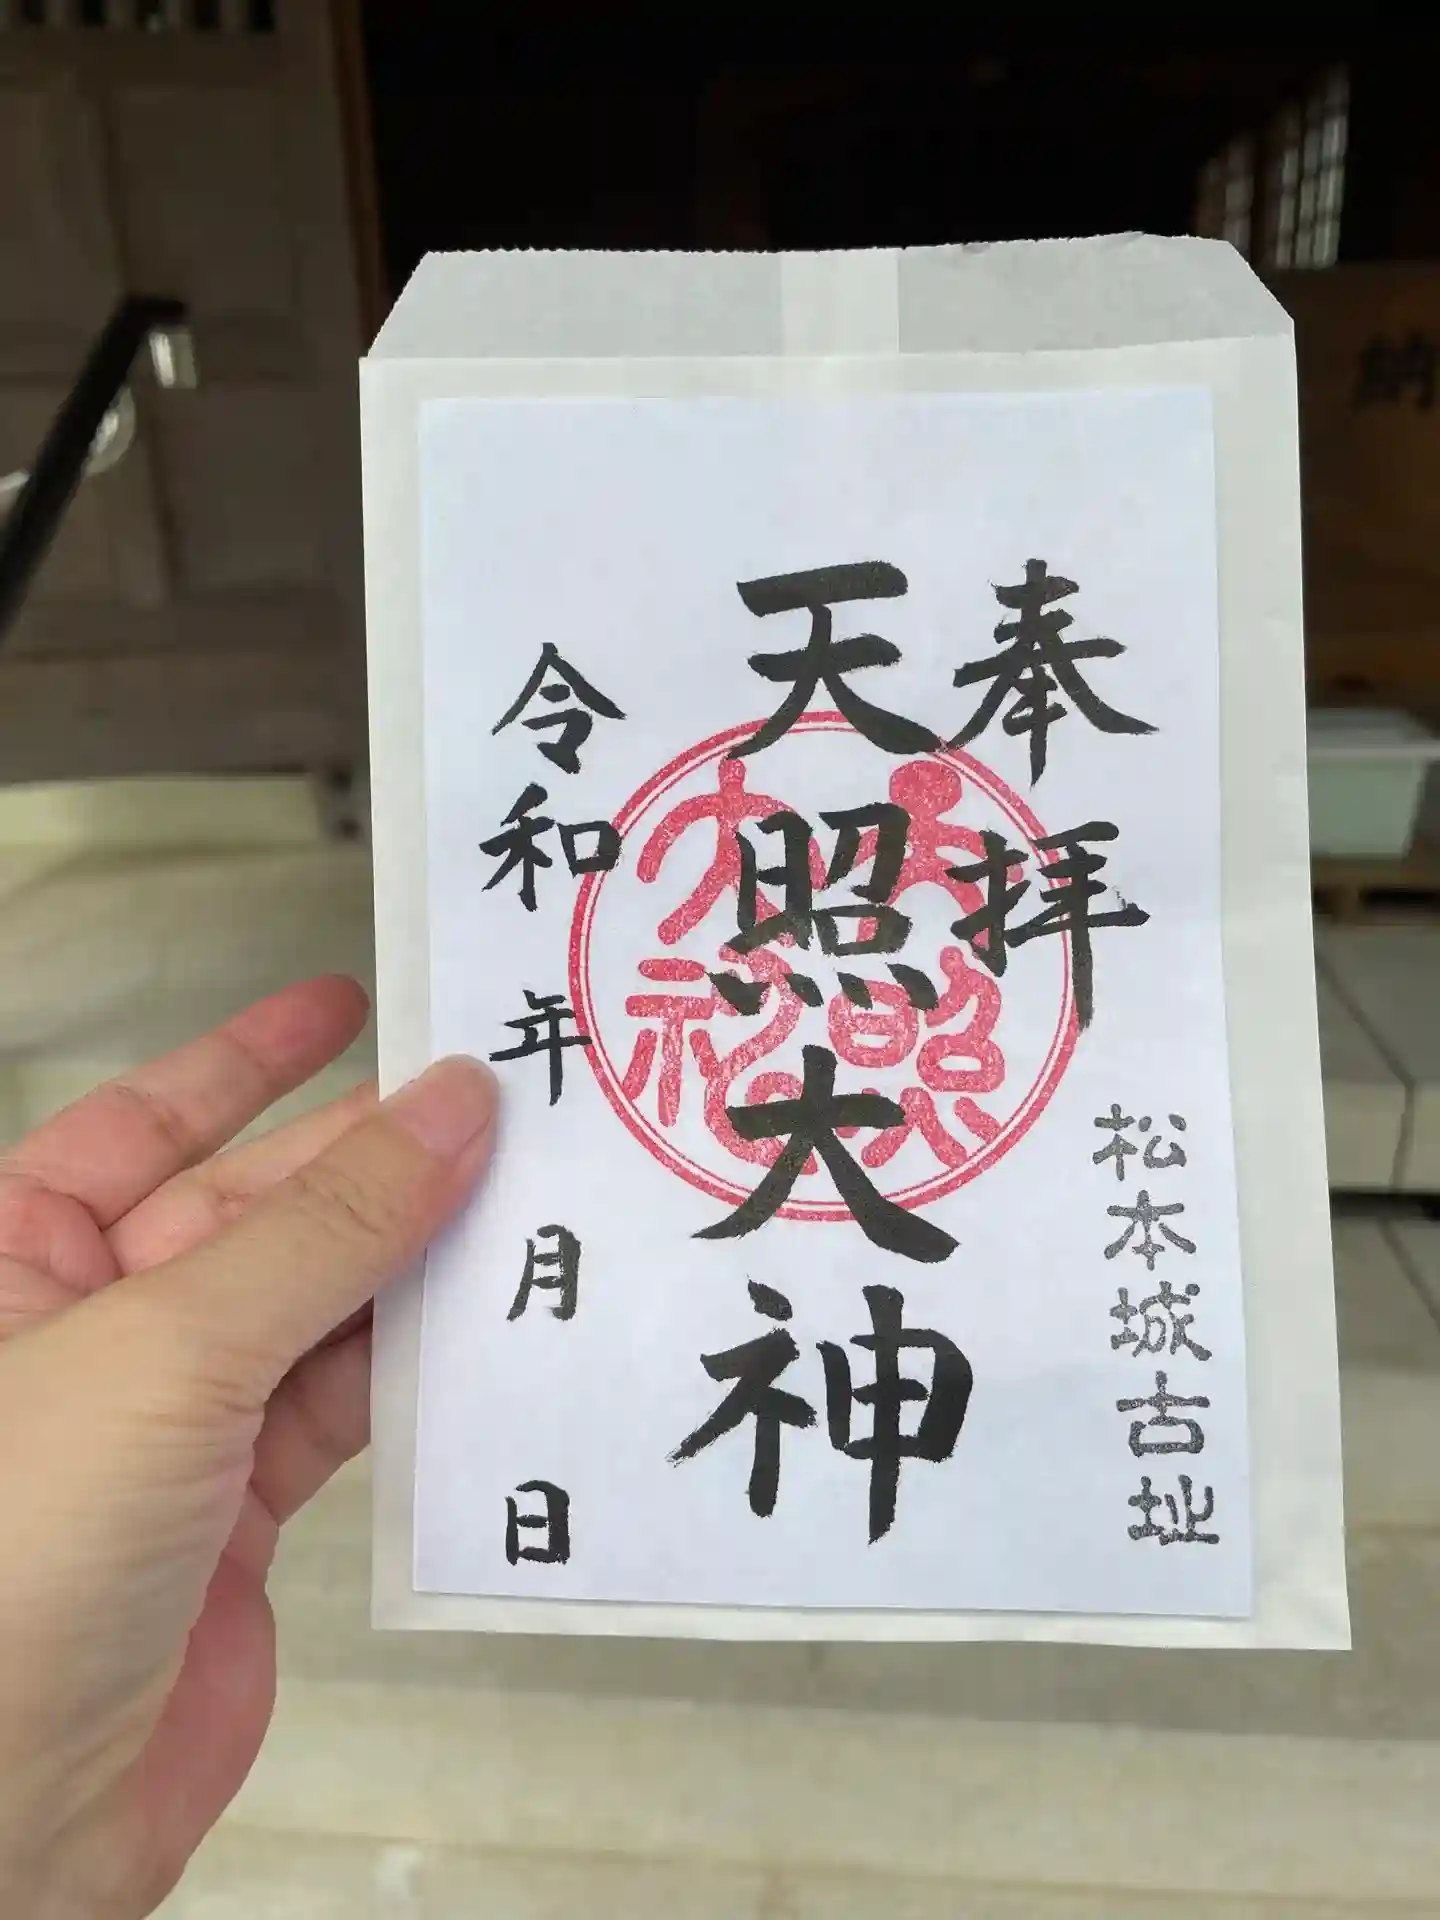 奉拝
松本城古址
天照大神
天照
大神
令和 年 月 日
納